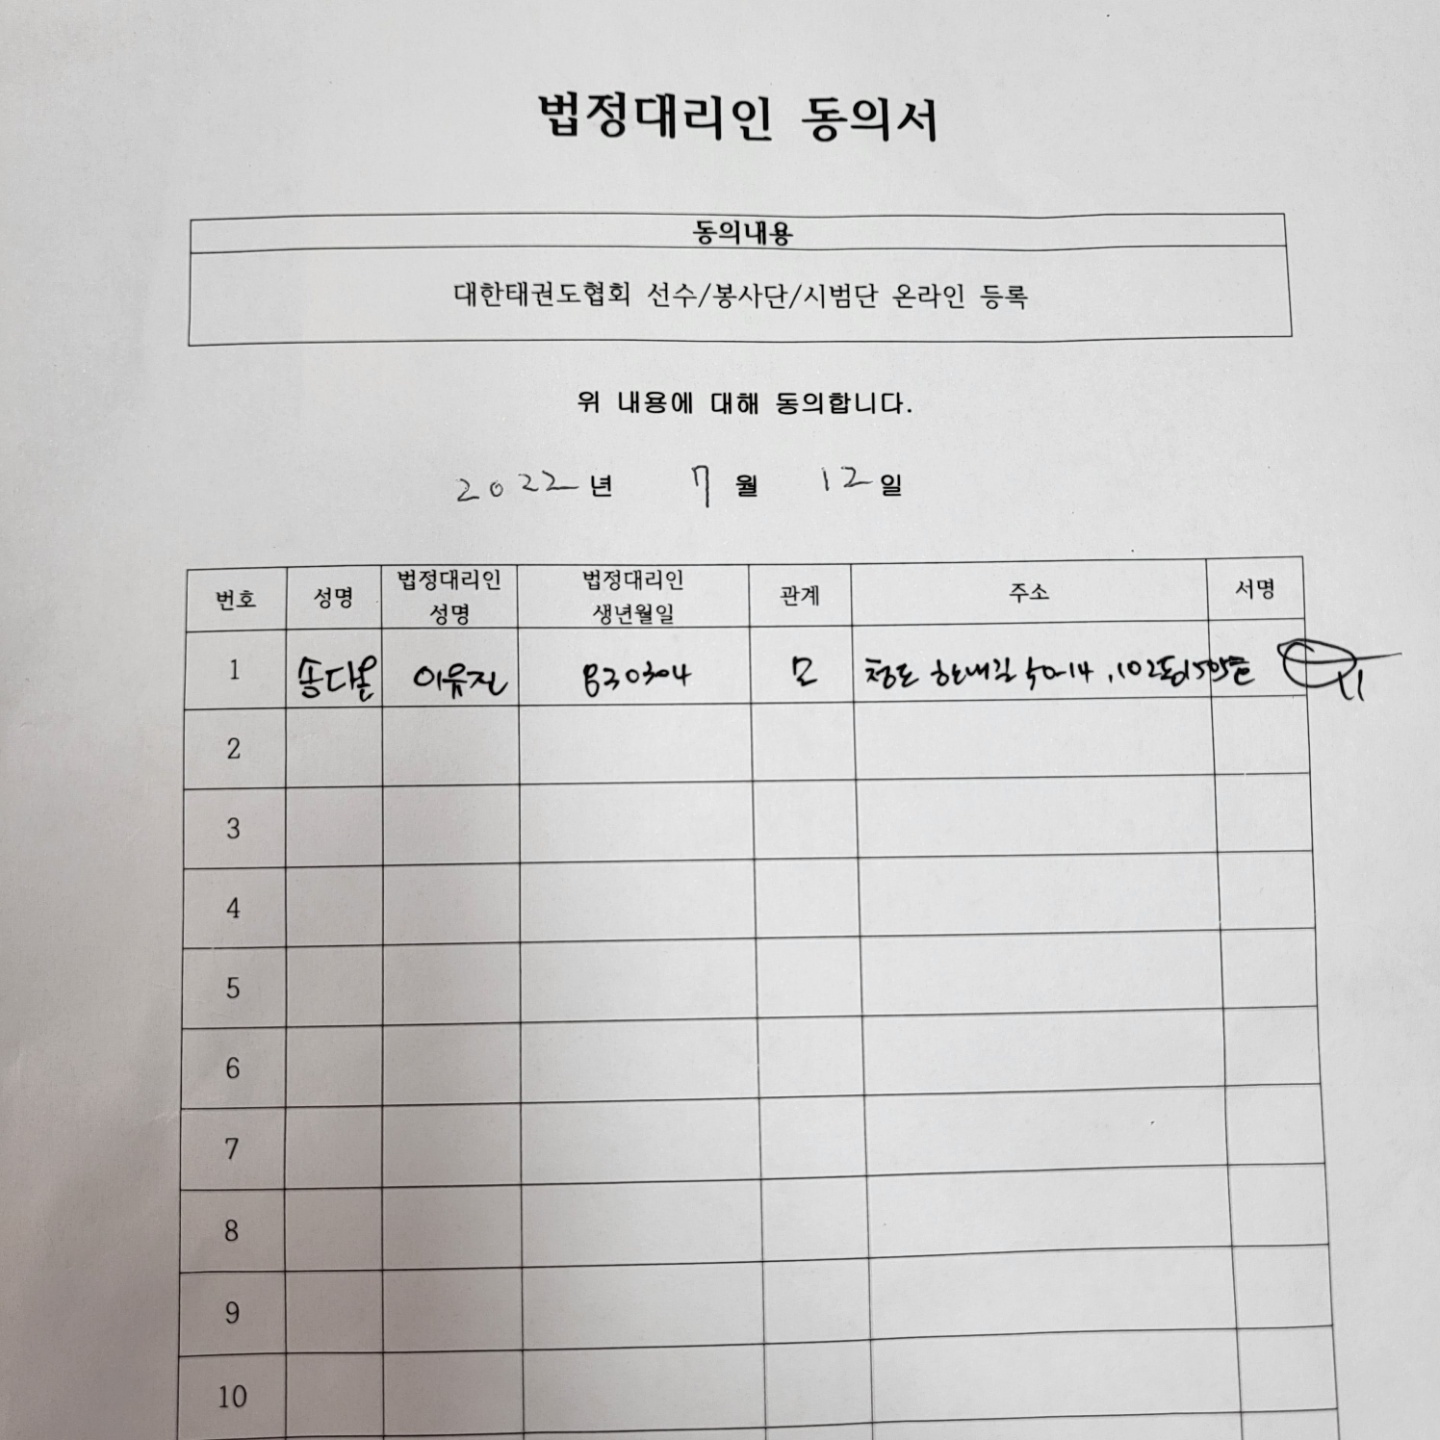 법정대리인 동의서
동의내용
대한태권도협회 선수/봉사단/시범단 온라인 등록
위 내용에 대해 동의합니다.
2022년 7월 12일
번호 성명 법정대리인 성명 법정대리인 생년월일 관계 주소 서명
1 송다올 이유진 830304 모 청도 한내길 50-14, 102동
2
3
4
5
6
7
8
9
10